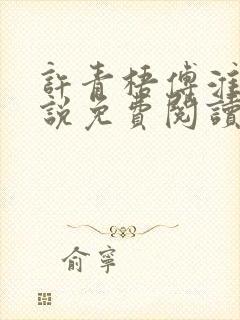 許青梧傅淮
說免費閱讀
俞寧